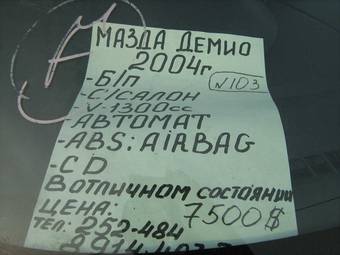 МАЗДА ДЕМИО
2004г
-Б/П
N103
-С/САЛОН
-V-1300сс
-АВТОМАТ
-ABS: AiRBAG
-CD
В ОТЛИЧНОМ СОСТОЯНИИ
ЦЕНА: 7500$
ТЕЛ: 252-484